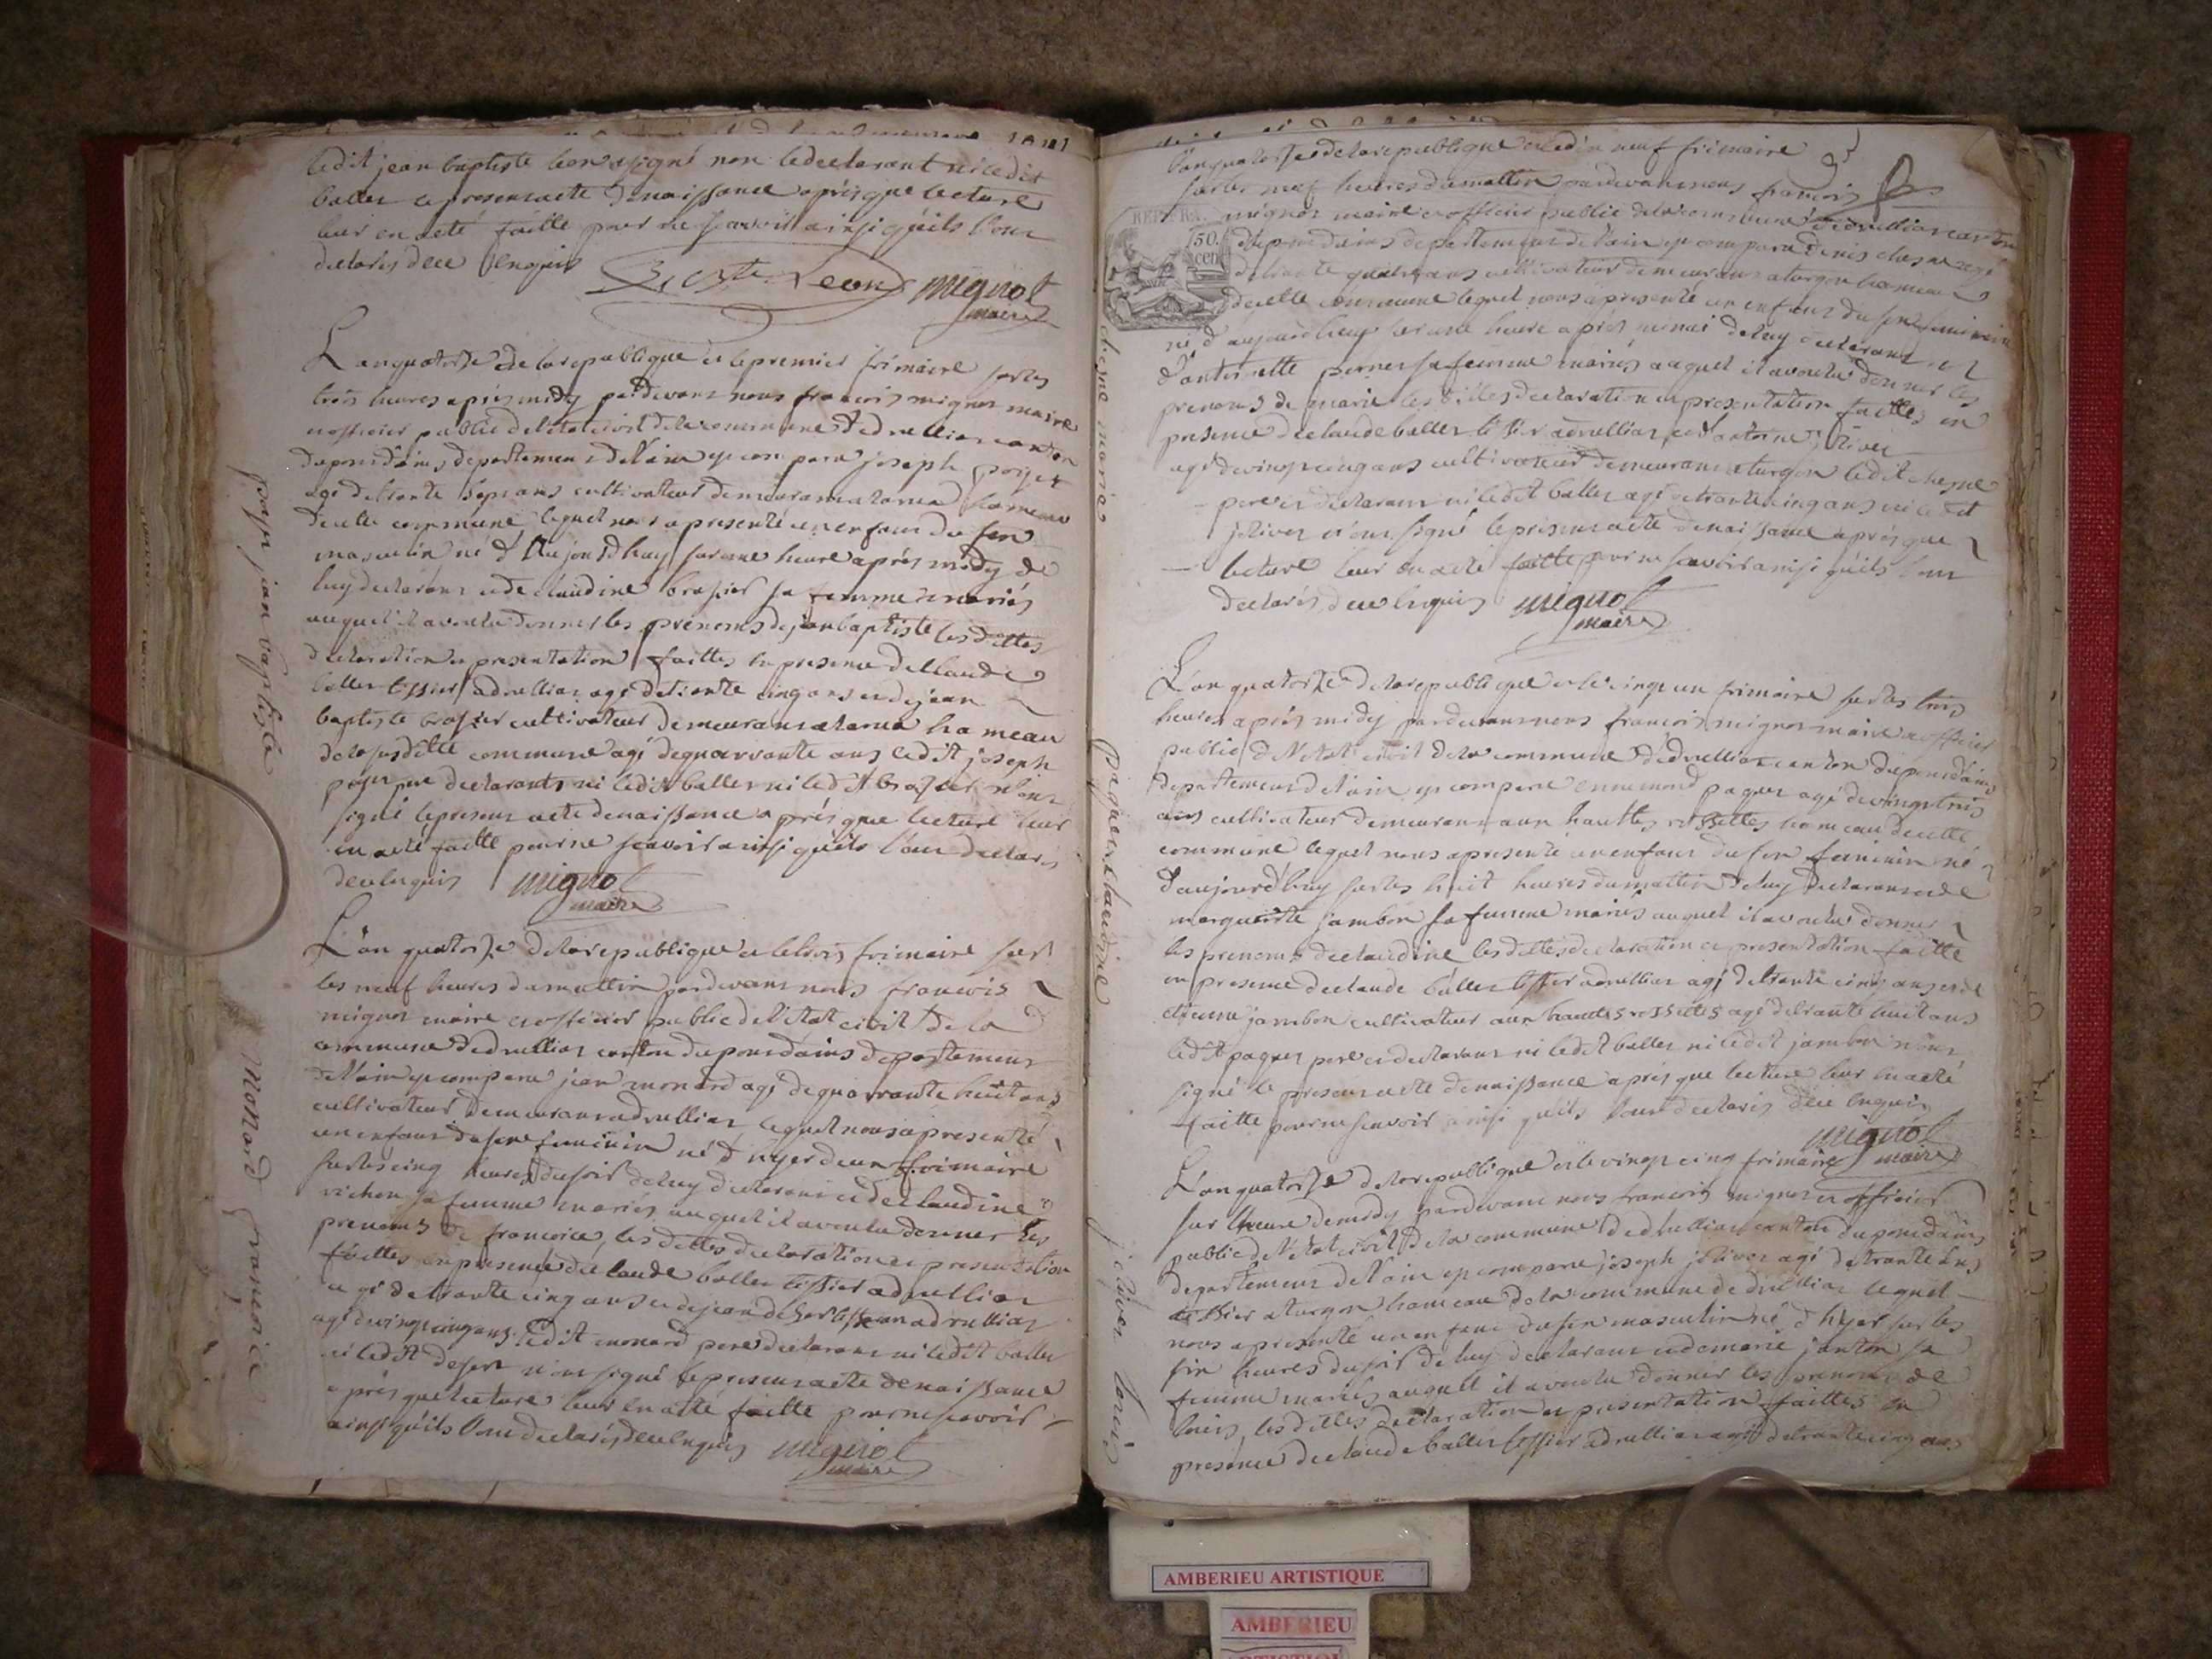 ledit jean baptiste leon a signé non le declarant ni ledit
ballet le present acte denaissance aprés que lecture
leur en a eté faitte pour ne scavoir ainsi quils l'ont
declarés dece enquis Bte Leon mignot
maire
poget jean baptiste
L'an quatorze de la republique et le premier frimaire sur les
trois heures aprés midy pardevant nous francois mignot maire
et officier public de l'etat civil dela commune de druilliat canton
du pont dains departement de l'ain est comparu joseph poget
agé de trante sept ans cultivateur demeurant a hameau
de cette commune lequel nous a presenté un enfant du sexe
masculin né d'aujourdhuy sur une heure aprés midy de
luy declarant et de claudine brasier sa femme mariés
auquel il a voulu donner les prénoms de jean baptiste les dittes
declaration et presentation faittes en presence de claude
ballet tissier a druilliat agé de trante cinq ans et de jean
baptiste brasier cultivateur demeurant a hameau
de la susditte commune agé de quarrante ans ledit joseph
poget pere declarant ni ledit ballet ni ledit brasier n'ont
signé le present acte denaissance aprés que lecture leur
en a eté faitte pour ne scavoir ainsi quils l'ont declarés
dece enquis mignot
maire
monard francoise
L'an quatorze de la republique et le trois frimaire sur
les neuf heures du mattin pardevant nous francois
mignot maire et officier public de l'etat civil de la
commune de druilliat canton du pont dains departement
de l'ain est comparu jean monard agé de quarrante huit ans
cultivateur demeurant a druilliat lequel nous a presenté
un enfant du sexe feminin né d'hyer deux frimaire
sur les cinq heures du soir de luy declarant et de claudine
vichon sa femme mariés auquel il a voulu donner les
prenoms de francoise, les dittes declaration et presentation
faittes en presence de claude ballet tissier a druilliat
agé de trante cinq ans et de jean a druilliat
agé de vingt cinq ans ledit monard pere declarant ni ledit ballet
ni ledit n'ont signé le present acte denaissance
aprés que lecture leur en a eté faitte pour ne scavoir
ainsi quils l'ont declarés dece enquis mignot
maire
L'an quatorze de la republique et le dix neuf frimaire
sur les neuf heures du mattin pardevant nous francois
mignot maire et officier public de la commune de druilliat canton
du pont dains departement de l'ain est comparu denis chesne agé
REP. FRA.
50.
cen
de trante quatre ans cultivateur demeurant a turgon hameau
de cette commune lequel nous a presenté un enfant du sexe feminin
né d'aujourdhuy sur une heure aprés minui de luy declarant et
d'antoinette perret sa femme mariés auquel il a voulu donner les
prenoms de marie les dittes declaration et presentation faittes en
presence de claude ballet tissier a druilliat et d'antoine jolivet
agé de vingt cinq ans cultivateur demeurant a turgon ledit chesne
pere et declarant ni ledit ballet agé de trante cinq ans ni ledit
jolivet n'ont signé le present acte denaissance aprés que
lecture leur en a eté faitte pour ne scavoir ainsi quils l'ont
declarés dece enquis mignot
maire
chesne marie
L'an quatorze de la republique et le vingt un frimaire sur les trois
heures aprés midy pardevant nous francois mignot maire et officier
public de l'etat civil de la commune de druilliat canton du pont dains
departement de l'ain est comparu ennemond paquet agé de vingt trois
ans cultivateur demeurant aux hauttes rossettes hameau de cette
commune lequel nous a presenté un enfant du sexe feminin né
d'aujourdhuy sur les huit heures du mattin de luy declarant et de
marguerite jambon sa femme mariés auquel il a voulu donner
les prenoms de claudine les dittes declaration et presentation faitte
en presence de claude ballet tissier a druilliat agé de trante cinq ans et de
etienne jambon cultivateur aux hauttes rossettes agé de trante huit ans
ledit paquet pere et declarant ni ledit ballet ni ledit jambon n'ont
signé le present acte denaissance aprés que lecture leur en a eté
faitte pour ne scavoir ainsi quils l'ont declarés dece enquis
mignot
maire
paquet claudine
L'an quatorze de la republique et le vingt cinq frimaire
sur l'heure de midy pardevant nous francois mignot et officier
public de l'etat civil de la commune de druilliat canton du pont dains
departement de l'ain est comparu joseph jolivet agé de trante ans
tissier a turgon hameau de la commune de druilliat lequel
nous a presenté un enfant du sexe masculin né d'hyer sur les
six heures du soir de luy declarant et de marie janton sa
femme mariés auquel il a voulu donner les prenoms de
louis, les dittes declaration et presentation faittes en
presence de claude ballet tissier a druilliat agé de trante cinq ans
jolivet louis
AMBERIEU ARTISTIQUE
AMBERIEU
ARTISTIQUE